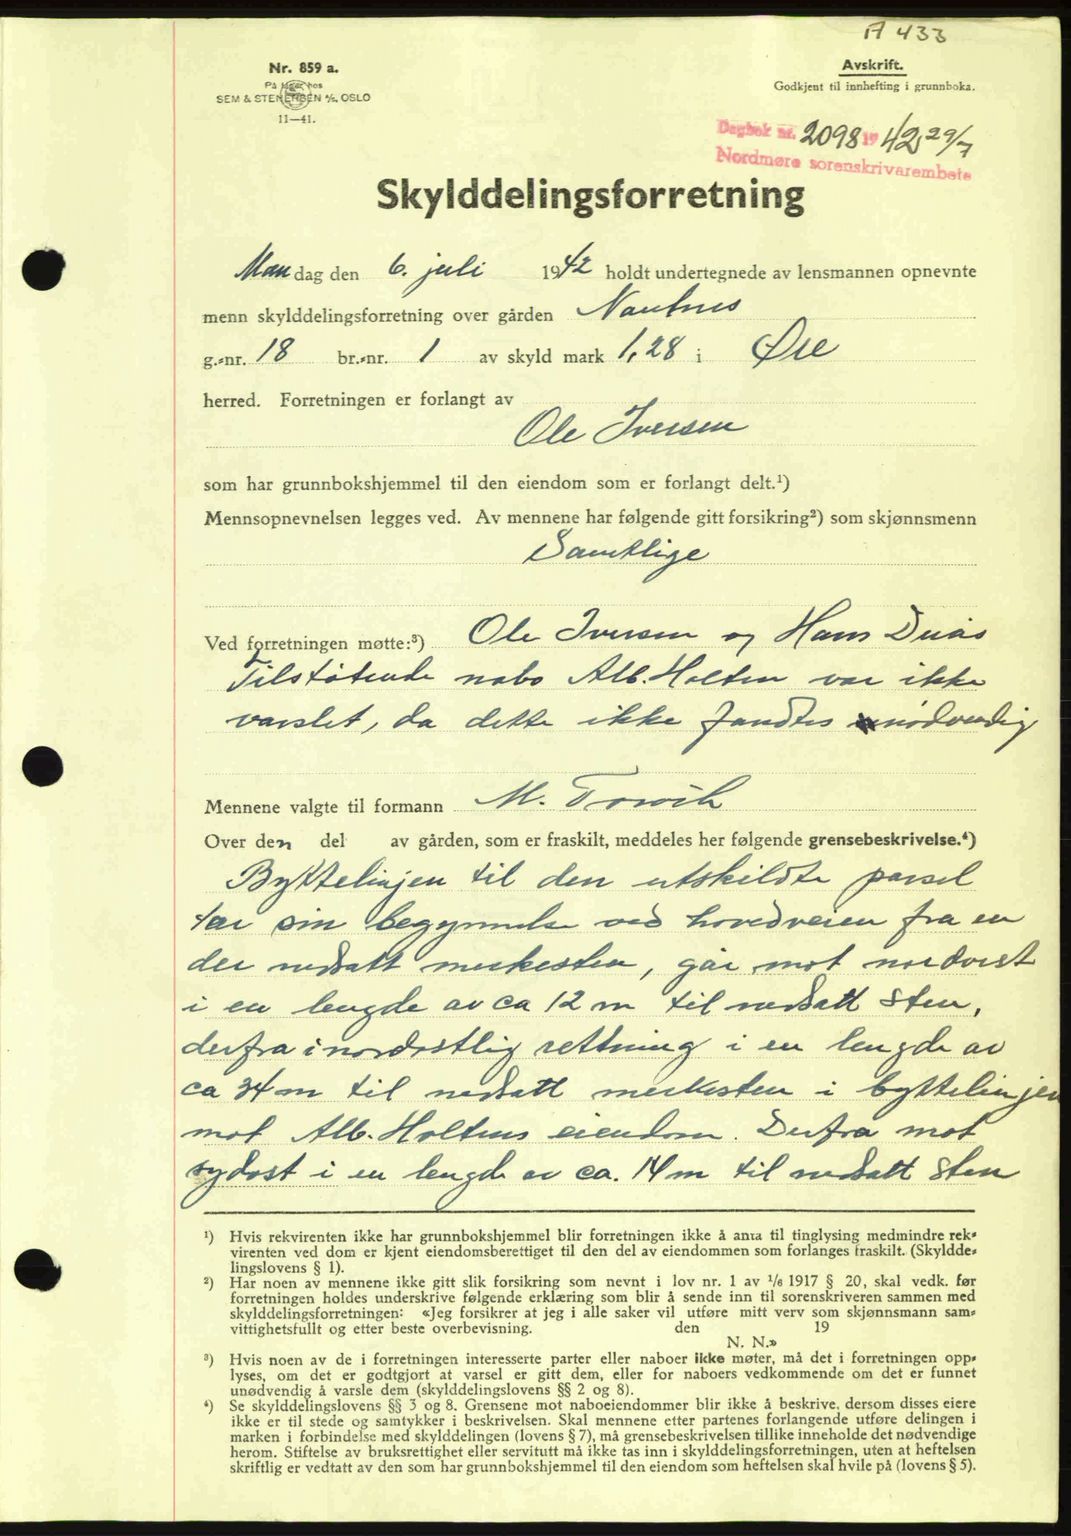 A 433
Nr. 859 a.
På lager hos
SEM & STENERSEN A/S, OSLO
11—41.
Avskrift.
Godkjent til innhefting i grunnboka.
Dagbok nr. 2098 1942 29/7
Nordmøre sorenskrivarembete
Skylddelingsforretning
Mandag den 6. juli 1942 holdt undertegnede av lensmannen opnevnte
menn skylddelingsforretning over gården Nautnes
g.-nr. 18 br.-nr. 1 av skyld mark 1,28 i Øre
herred. Forretningen er forlangt av
Ole Iversen
som har grunnbokshjemmel til den eiendom som er forlangt delt.¹)
Mennsopnevnelsen legges ved. Av mennene har følgende gitt forsikring²) som skjønnsmenn
Samtlige
Ved forretningen møtte:³) Ole Iversen og Hans
Tilstøtende nabo Alb. Holten var ikke
varslet, da dette ikke fandtes nødvendig
Mennene valgte til formann M. Torvik
Over den del av gården, som er fraskilt, meddeles her følgende grensebeskrivelse.⁴)
Byttelinjen til den utskildte parsel
tar sin begynnelse ved hovedveien fra en
der nedsatt merkesten, går mot nordvest
i en lengde av ca 12 m til nedsatt sten,
derfra i nordostlig retning i en lengde av
ca 34 m til nedsatt merkesten i byttelinjen
mot Alb. Holtens eiendom. Derfra mot
sydost i en lengde av ca. 14 m til nedsatt sten
¹) Hvis rekvirenten ikke har grunnbokshjemmel blir forretningen ikke å anta til tinglysing medmindre rek-
virenten ved dom er kjent eiendomsberettiget til den del av eiendommen som forlanges fraskilt. (Skyldde-
lingslovens § 1).
²) Har noen av mennene ikke gitt slik forsikring som nevnt i lov nr. 1 av 1/6 1917 § 20, skal vedk. før
forretningen holdes underskrive følgende erklæring som blir å sende inn til sorenskriveren sammen med
skylddelingsforretningen: «Jeg forsikrer at jeg i alle saker vil utføre mitt verv som skjønnsmann sam-
vittighetsfullt og etter beste overbevisning. den 19
N. N.»
³) Hvis noen av de i forretningen interesserte parter eller naboer ikke møter, må det i forretningen opp-
lyses, om det er godtgjort at varsel er gitt dem, eller for naboers vedkommende om det er funnet
unødvendig å varsle dem (skylddelingslovens §§ 2 og 8).
⁴) Se skylddelingslovens §§ 3 og 8. Grensene mot naboeiendommer blir ikke å beskrive, dersom disses eiere
ikke er til stede og samtykker i beskrivelsen. Skal mennene etter partenes forlangende utføre delingen i
marken i forbindelse med skylddelingen (lovens § 7), må grensebeskrivelsen tillike inneholde det nødvendige
herom. Stiftelse av bruksrettighet eller servitutt må ikke tas inn i skylddelingsforretningen, uten at heftelsen
skriftlig er vedtatt av den som har grunnbokshjemmel til den eiendom som heftelsen skal hvile på (lovens § 5).